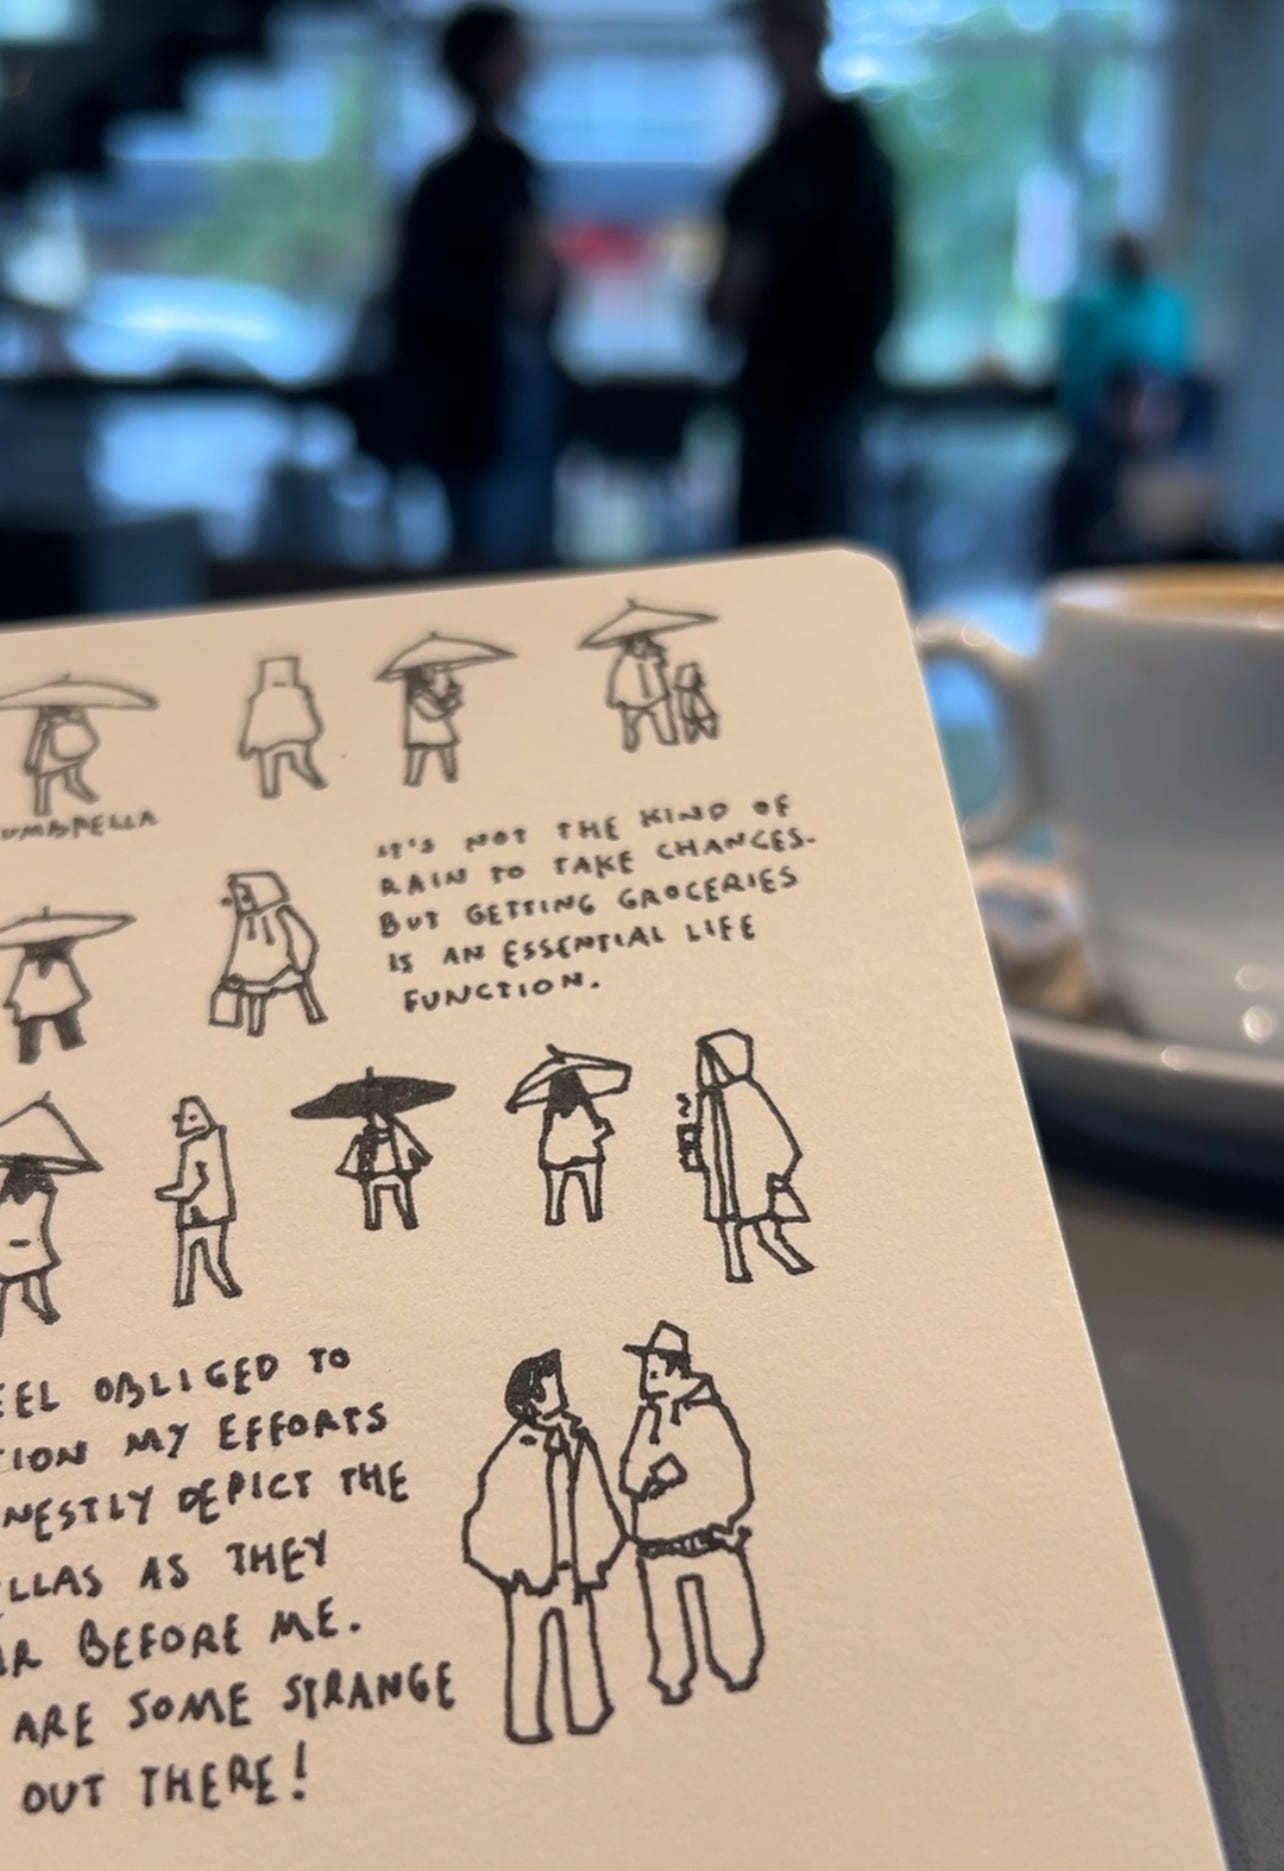 UMBRELLA
IT'S NOT THE KIND OF
RAIN TO TAKE CHANCES.
BUT GETTING GROCERIES
IS AN ESSENTIAL LIFE
FUNCTION.
EEL OBLIGED TO
TION MY EFFORTS
NESTLY DEPICT THE
LLAS AS THEY
AR BEFORE ME.
ARE SOME STRANGE
OUT THERE!